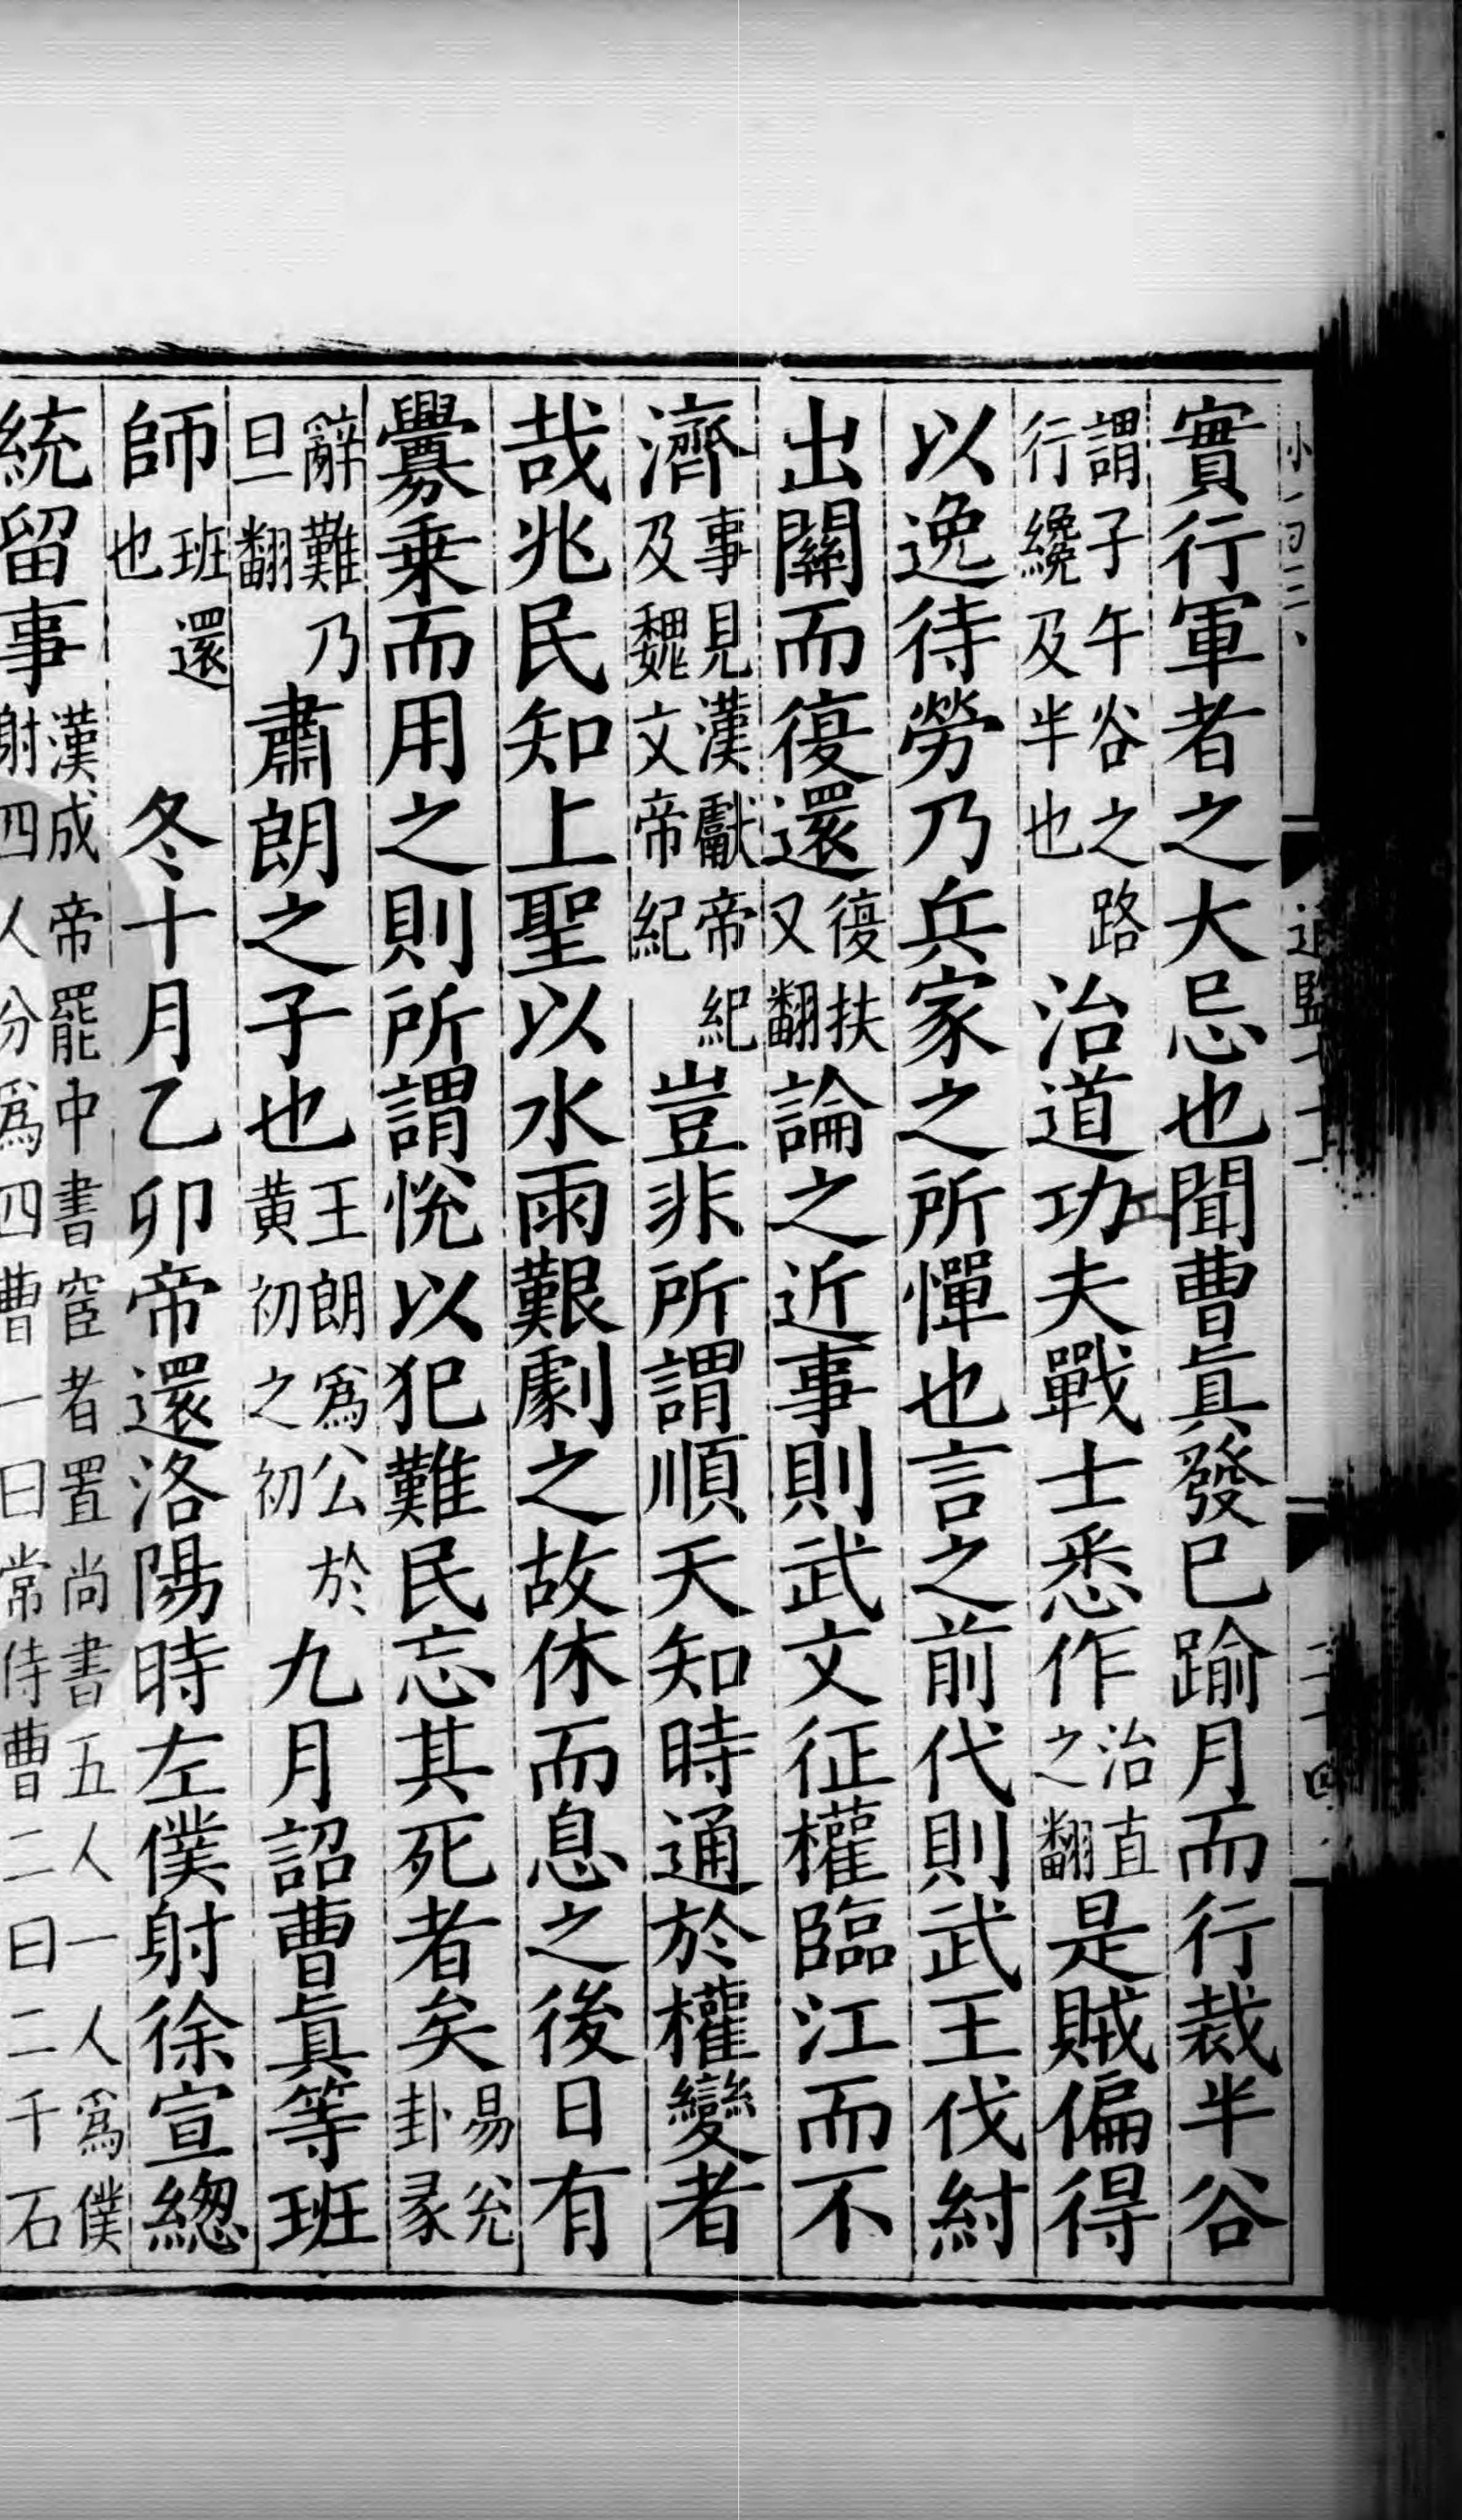 實行軍者之大忌也聞曹真發已踰月而行裁半谷
謂子午谷之路行纔及半也治道功夫戰士悉作治直之翻是賊偏得
以逸待勞乃兵家之所憚也言之前代則武王伐紂
出關而復還復扶又翻論之近事則武文征權臨江而不
濟事見漢獻帝紀及魏文帝紀豈非所謂順天知時通於權變者
哉兆民知上聖以水雨艱劇之故休而息之後日有
釁乗而用之則所謂恱以犯難民忘其死者矣易兊卦彖
辭難乃旦翻肅朗之子也王朗爲公於黄初之初九月詔曹真等班
師班還也冬十月乙卯帝還洛陽時左僕射徐宣緫
統留事漢成帝罷中書宦者置尚書五人一人爲僕射四人分爲四曹一曰常侍曹二曰二千石